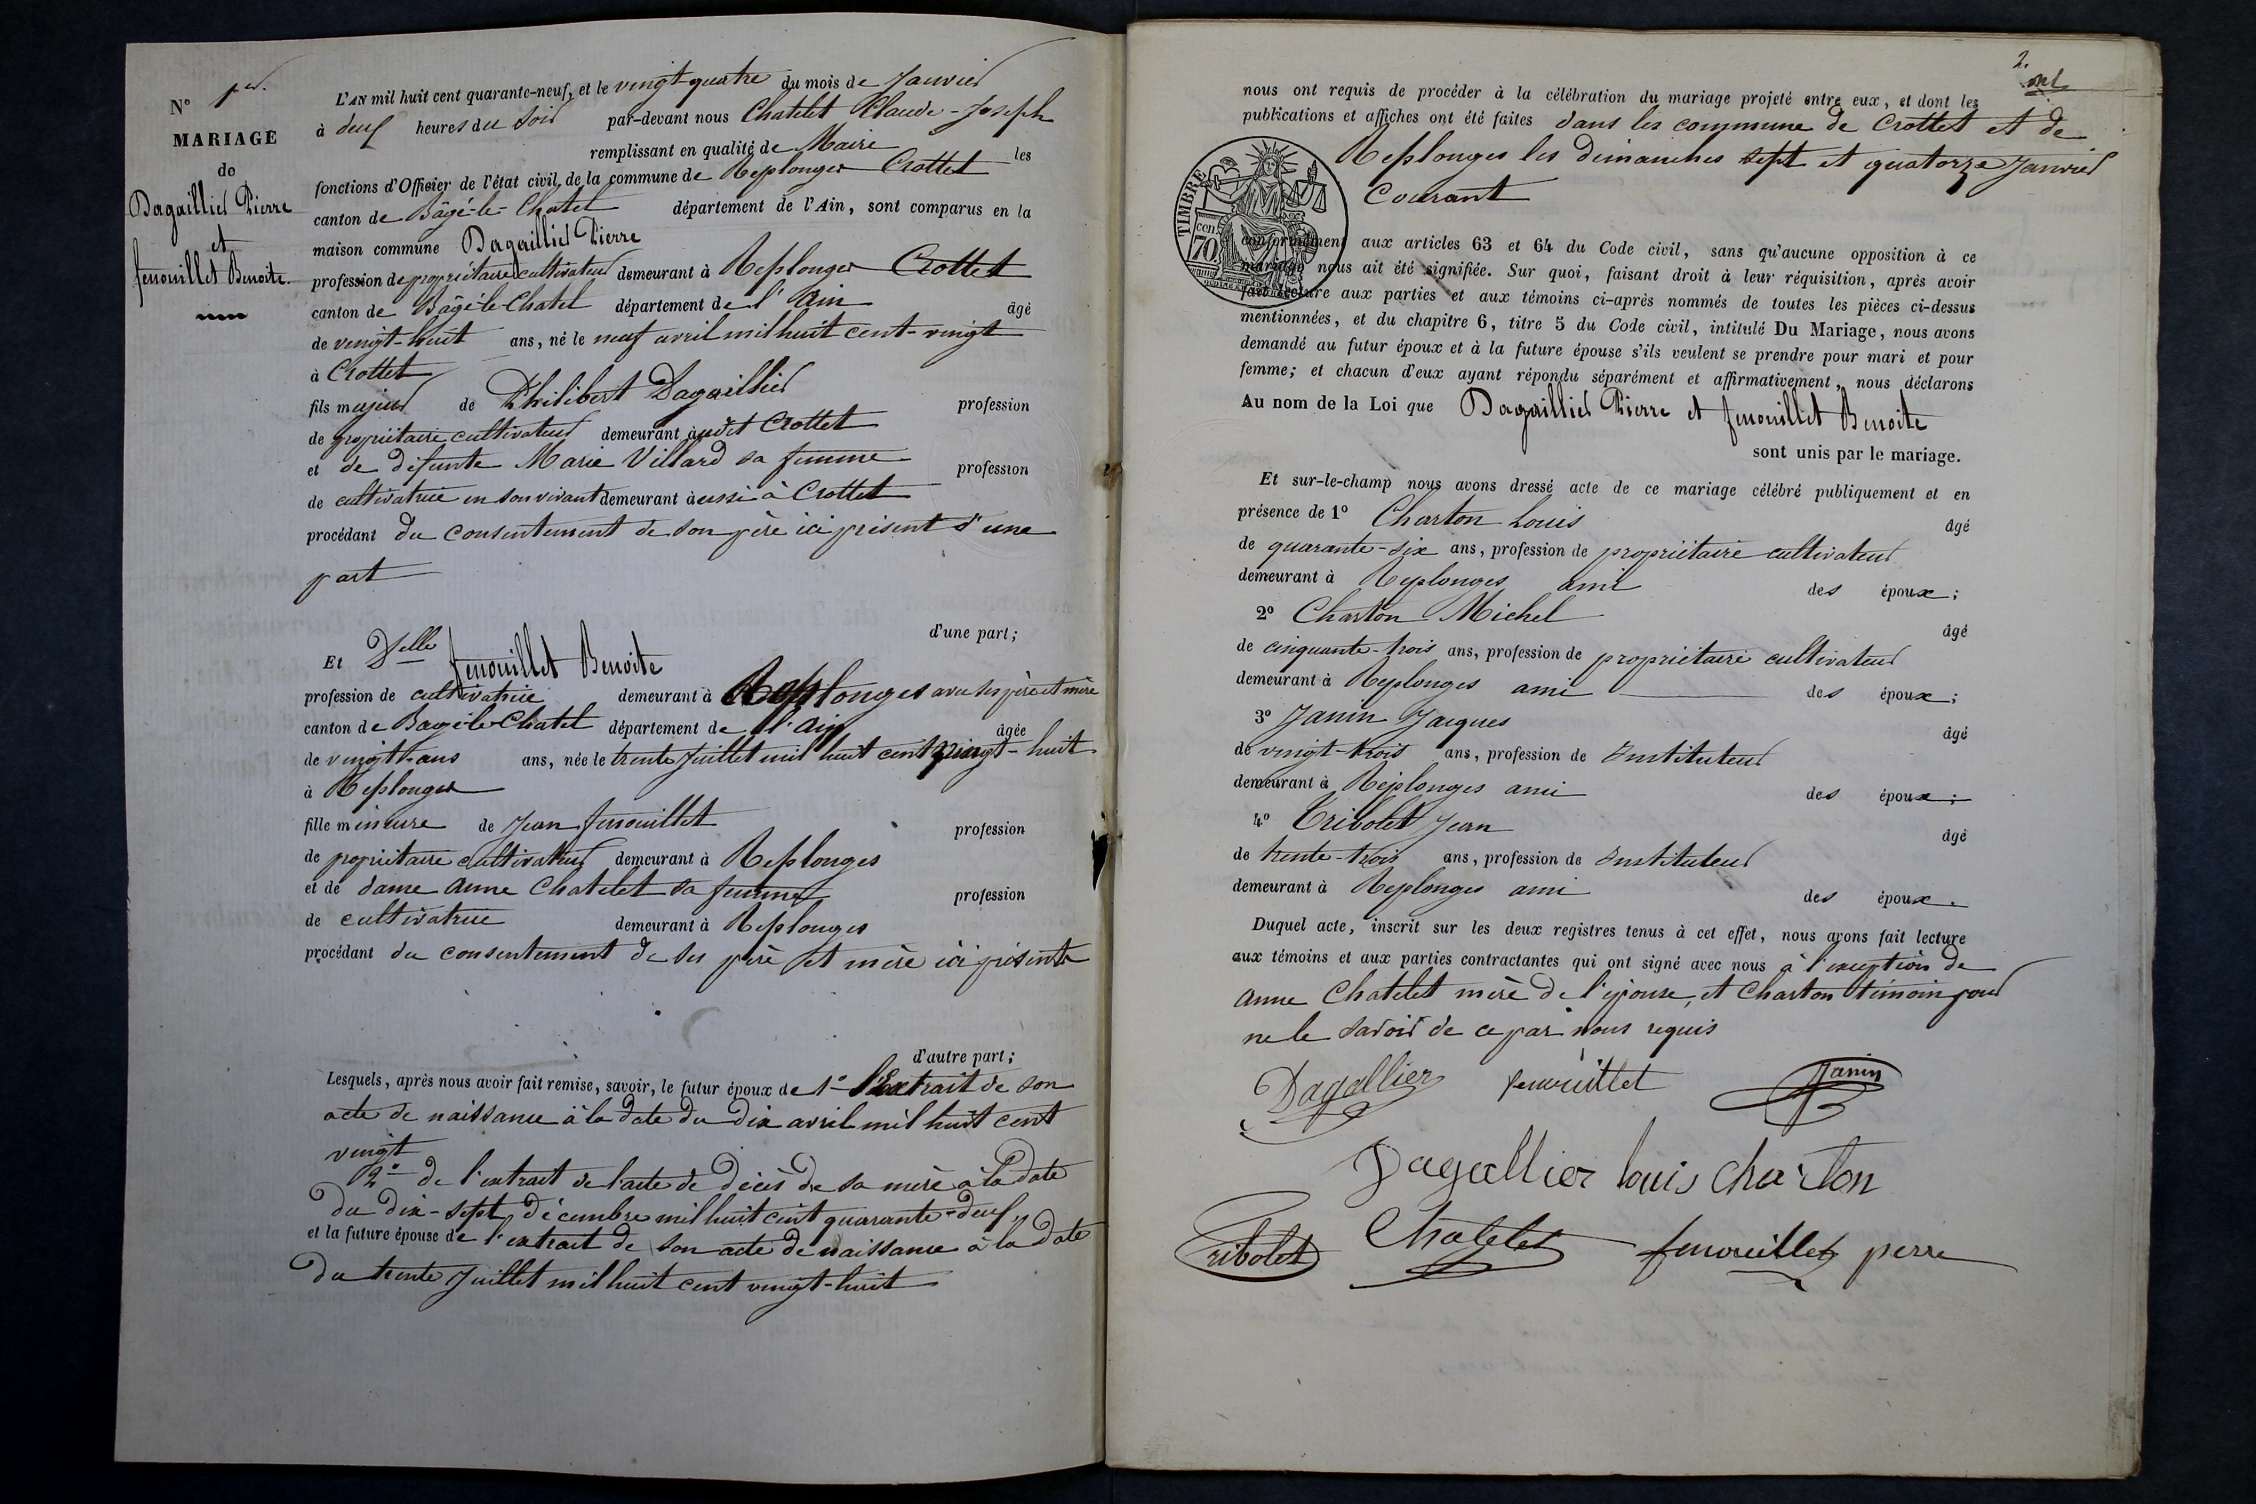 N° 1er
MARIAGE
de
Dagaillier Pierre
et
fenouillet Benoite
L'AN mil huit cent quarante-neuf, et le vingt quatre du mois de Janvier
à deux heures du soir par-devant nous Chatelet Claude-Joseph
remplissant en qualité de Maire les
fonctions d'Officier de l'état civil de la commune de Replonges Crottet
canton de Bâgé-le-Chatel département de l'Ain, sont comparus en la
maison commune Dagaillier Pierre
profession de propriétaire cultivateur demeurant à Replonges Crottet
canton de Bâgé-le-Chatel département de l'Ain âgé
de vingt-huit ans, né le neuf avril mil huit cent-vingt
à Crottet
fils majeur de Philibert Dagaillier profession
de propriétaire cultivateur demeurant audit Crottet
et de défunte Marie Villard sa femme profession
de cultivatrice en son vivant demeurant aussi à Crottet
procédant du consentement de son père ici présent d'une
part
d'une part;
Et Delle fenouillet Benoite
profession de cultivatrice demeurant à Replonges avec ses père et mère
canton de Bagé-le-Chatel département de l'Ain âgée
de vingt ans ans, née le trente Juillet mil huit cent vingt-huit
à Replonges
fille mineure de Jean fenouillet profession
de propriétaire cultivateur demeurant à Replonges
et de dame Anne Chatelet sa femme profession
de cultivatrice demeurant à Replonges
procédant du consentement de ses père et mère ici présents
d'autre part;
Lesquels, après nous avoir fait remise, savoir, le futur époux de 1° l'Extrait de son
acte de naissance à la date du dix avril mil huit cent
vingt
2° de l'extrait de l'acte de décès de sa mère à la date
du dix-sept décembre mil huit cent quarante-deux,
et la future épouse de l'extrait de son acte de naissance à la date
du trente Juillet mil huit cent vingt-huit
2.
nous ont requis de procéder à la célébration du mariage projeté entre eux, et dont les
publications et affiches ont été faites dans les commune de Crottet et de
Replonges les dimanches sept et quatorze Janvier
Courant
TIMBRE
70 cen
conformément aux articles 63 et 64 du Code civil, sans qu'aucune opposition à ce
mariage nous ait été signifiée. Sur quoi, faisant droit à leur réquisition, après avoir
fait lecture aux parties et aux témoins ci-après nommés de toutes les pièces ci-dessus
mentionnées, et du chapitre 6, titre 5 du Code civil, intitulé Du Mariage, nous avons
demandé au futur époux et à la future épouse s'ils veulent se prendre pour mari et pour
femme; et chacun d'eux ayant répondu séparément et affirmativement, nous déclarons
Au nom de la Loi que Dagaillier Pierre et fenouillet Benoite
sont unis par le mariage.
Et sur-le-champ nous avons dressé acte de ce mariage célébré publiquement et en
présence de 1° Charton Louis âgé
de quarante-six ans, profession de propriétaire cultivateur
demeurant à Replonges ami des époux;
2° Charton Michel âgé
de cinquante-trois ans, profession de propriétaire cultivateur
demeurant à Replonges ami des époux;
3° Janin Jacques âgé
de vingt-trois ans, profession de Instituteur
demeurant à Replonges ami des époux;
4° Tribolet Jean âgé
de trente-trois ans, profession de Instituteur
demeurant à Replonges ami des époux.
Duquel acte, inscrit sur les deux registres tenus à cet effet, nous avons fait lecture
aux témoins et aux parties contractantes qui ont signé avec nous à l'exception de
Anne Chatelet mère de l'épouse, et Charton témoin pour
ne le savoir de ce par nous requis
Dagallier fenouillet Janin
Dagallier louis charton
Tribolet Chatelet fenouillet perre